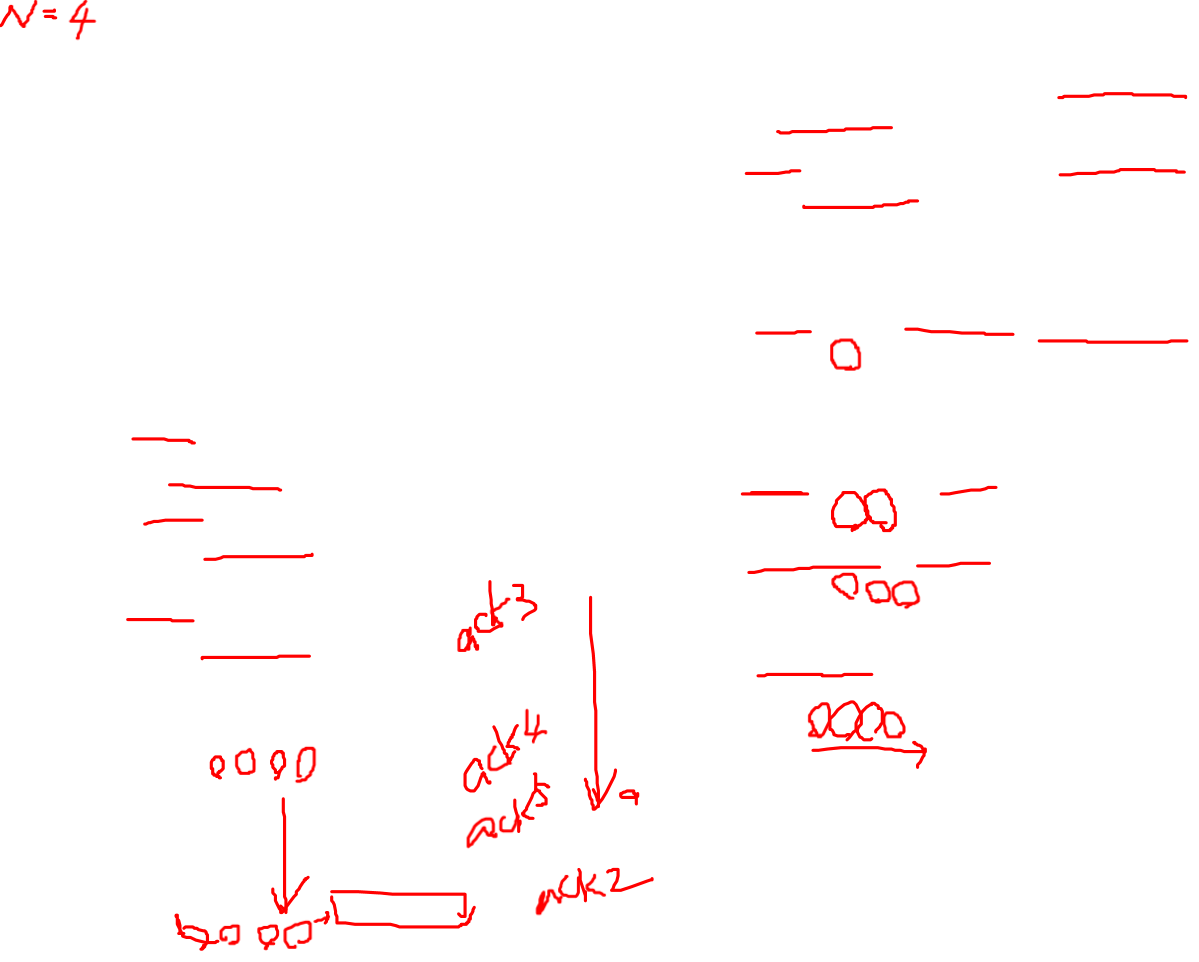 N=4
ack3
ack4
ack5
ack2